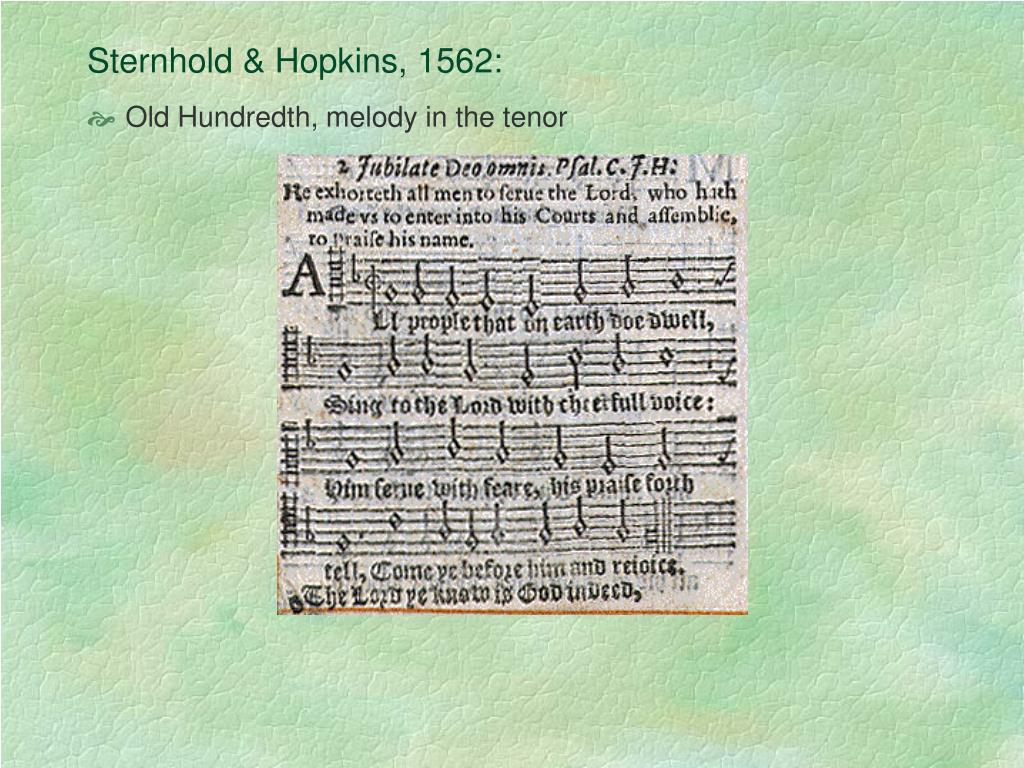 Sternhold & Hopkins, 1562:
Old Hundredth, melody in the tenor
2 Jubilate Deo omnis. Pſal. C. J. H:
He exhorteth all men to ſerue the Lord, who hath
made vs to enter into his Courts and aſſemblie,
to praiſe his name.
ALl people that on earth doe dwell,
Sing to the Lord with cheerfull voice:
Him ſerue with feare, his praiſe forth
tell, Come ye before him and reioice.
The Lord ye know is God indeed,